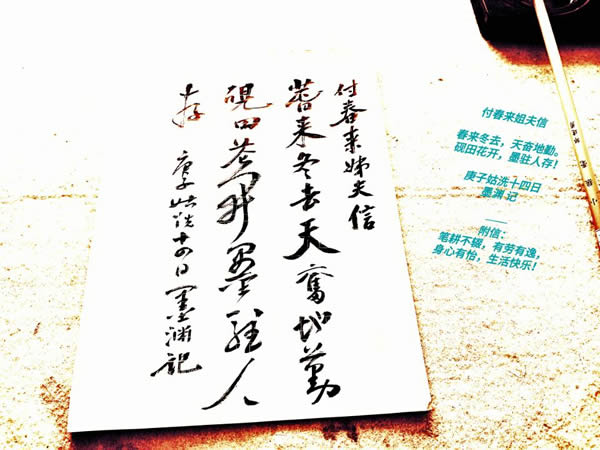 付春来姊夫信
春来冬去天奮地勤
硯田花开墨駐人
存 庚子姑洗十四日 墨渊记
付春来姐夫信
春来冬去，天奋地勤。
砚田花开，墨驻人存！
庚子姑洗十四日
墨渊 记
附信：
笔耕不辍，有劳有逸，
身心有怡，生活快乐！